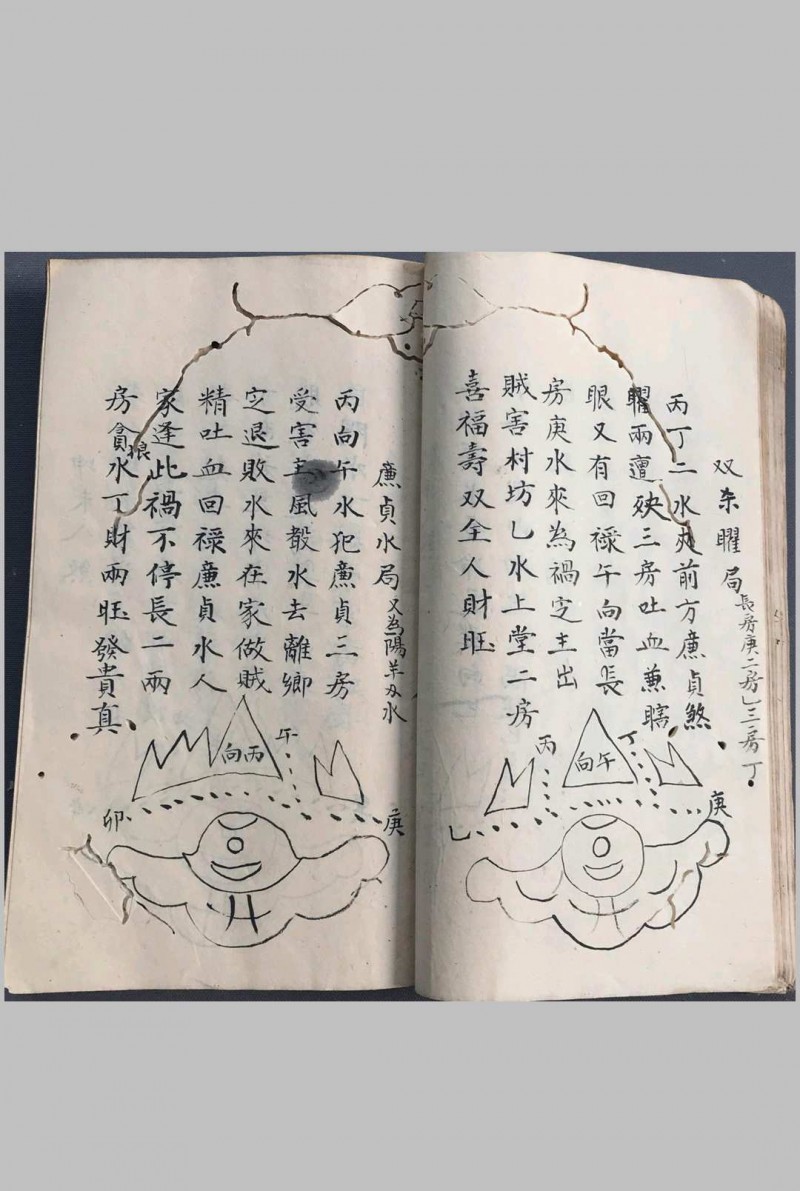 双朿曜局長房庚二房乚三房丁
丙丁二水夾前方廉貞煞
曜兩遭殃三房吐血兼瞎
眼又有回禄午向當長
房庚水來為禍定主出
賊害村坊乚水上堂二房
喜福壽双全人財旺
丙
午向
丁
乚
庚
廉貞水局又為陽羊刃水
丙向午水犯廉貞三房
受害主風殼水去離鄉
定退敗水來在家做賊
精吐血回禄廉貞水人
家逢此禍不停長二兩
房貪狼水丁財兩旺發貴真
丙向
午
卯
庚